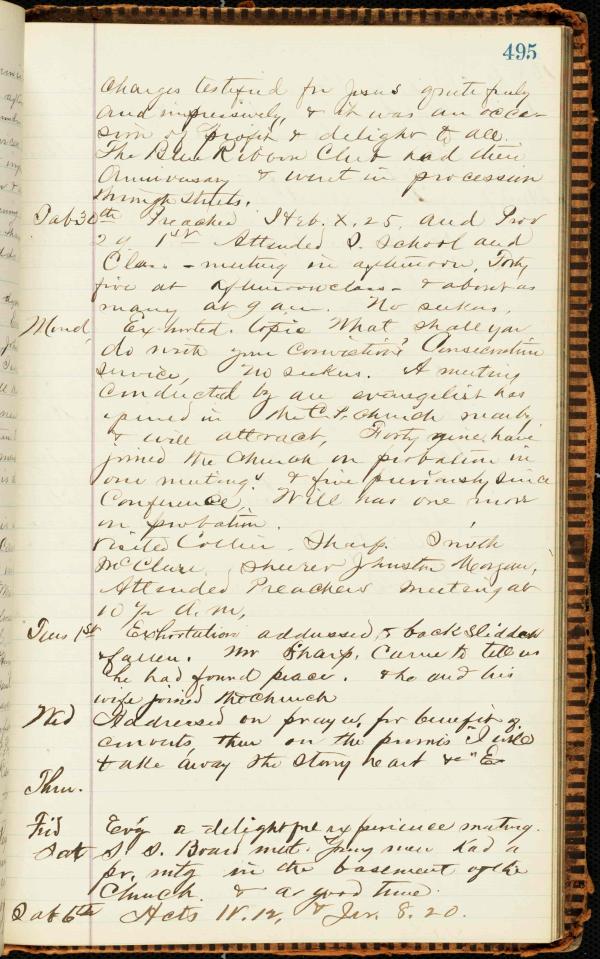 495
charges testified for Jesus quite freely
and impressively, & it was an occa-
sion of profit & delight to all.
The Blue Ribbon Club had their
Anniversary & went in procession
through streets.
Sab 30th Preached Heb. X. 25, and Prov
29 1st Attended S. School and
Class-meeting in afternoon, Forty
five at afternoon class- & about as
many at 9 am. No seekers.
Mond, Exhorted. topic What shall you
do with your convictions? Consecration
service, No seekers. A meeting
conducted by an evangelist has
opened in the C. P. church nearby
& will attract, Forty nine have
joined the Church on probation in
our meetings & five previously since
Conference, Will has one more
on probation.
Visited Collier. Sharp. Smith
McClure, Sheerer Johnston Morgan,
Attended Preachers meeting at
10 1/2 A. M,
Tues 1st Exhortation addressed to back slidden
& fallen. Mr Sharp. Came to tell us
he had found peace. & he and his
wife joined the church
Wed Addressed on prayer, for benefit of
converts, then on the promis "I will
take away the stony heart &c"
Thur.
Frid Ev'g a delightful experience meeting.
Sat S. S. Board met. Young men had a
pr. mtg in the basement of the
Church. & a good time.
Sab 6th Acts IV. 12, & Jer. 8. 20.